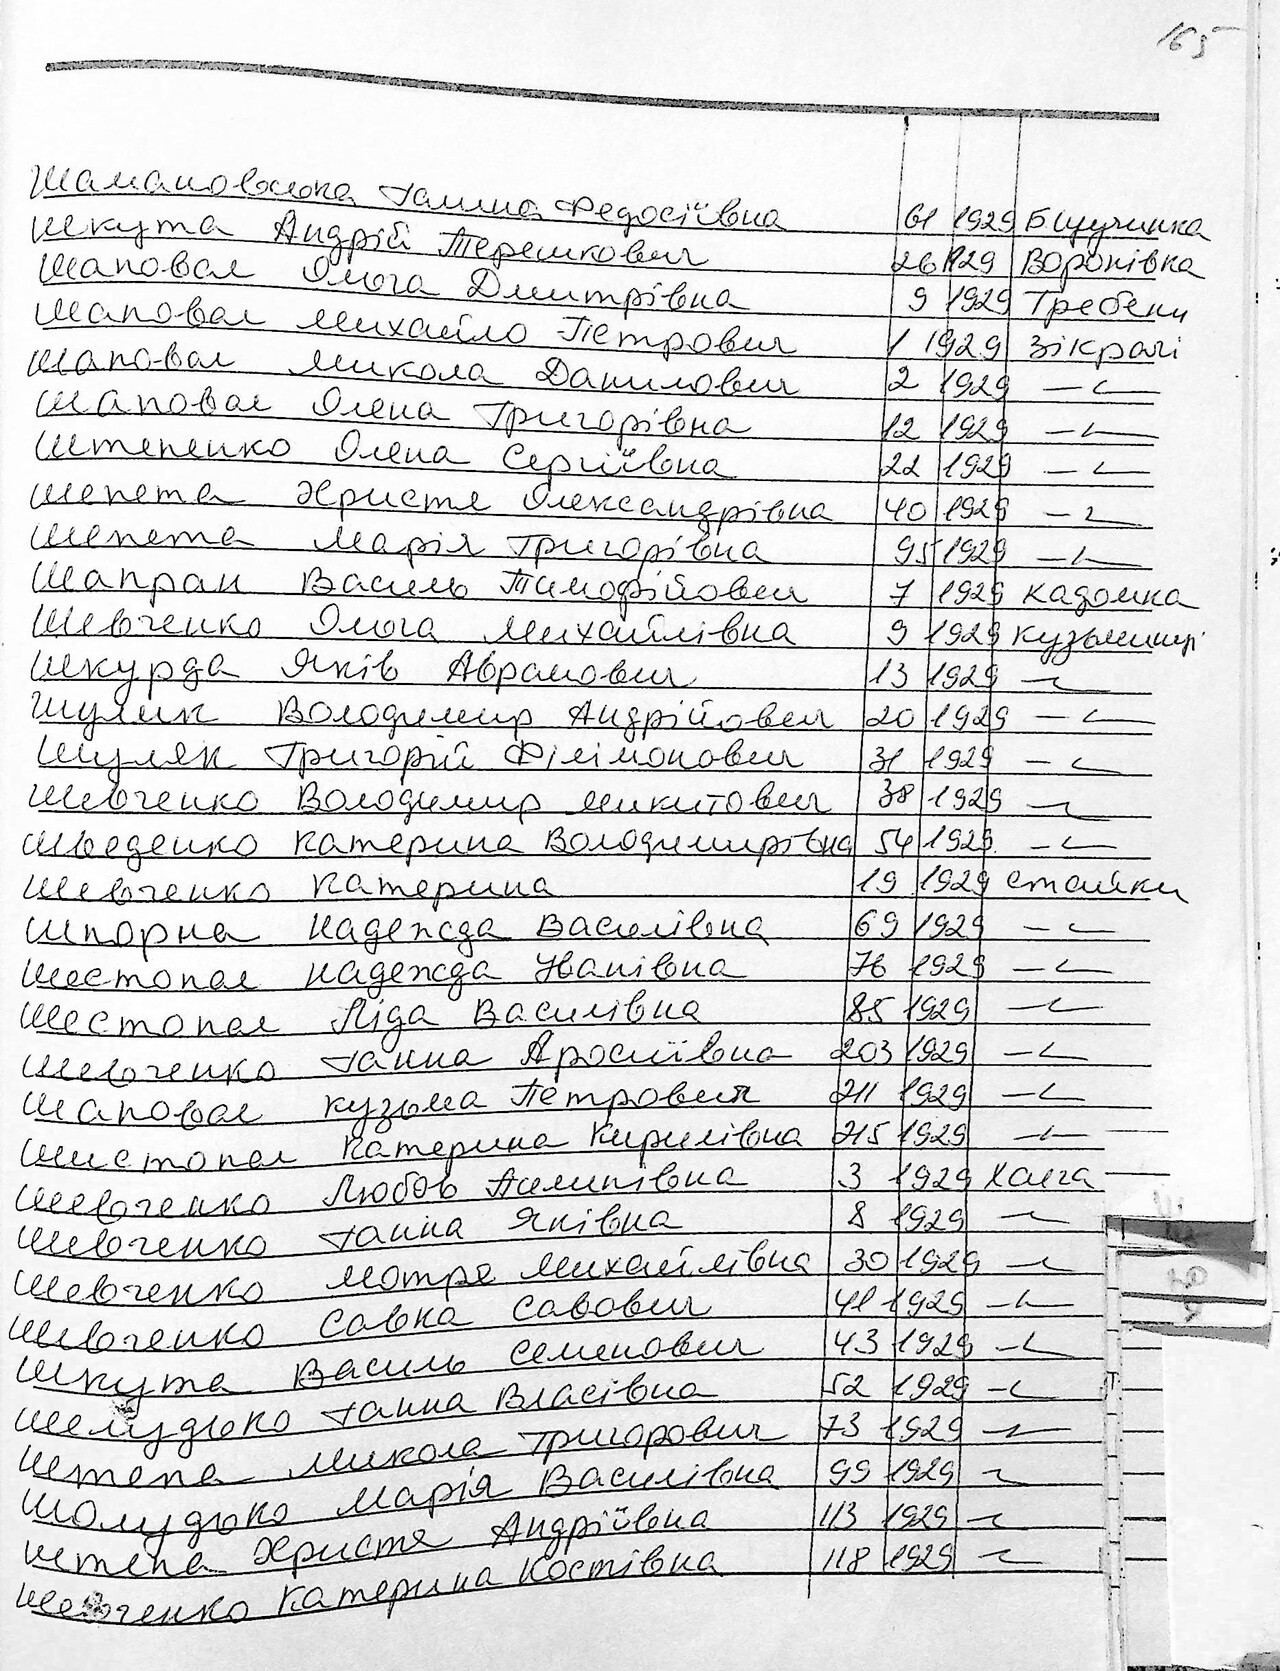 165
Шамановська Галина Федосіївна 61 1929 Б Щучинка
Шкута Андрій Терешкович 26 1929 Воронівка
Шаповал Ольга Дмитрівна 9 1929 Гребени
Шаповал Михайло Петрович 1 1929 Зікрачі
Шаповал Микола Данилович 2 1929 –"–
Шаповал Олена Григорівна 12 1929 –"–
Штепенко Олена Сергіївна 22 1929 –"–
Шепета Христя Олександрівна 40 1929 –"–
Шепета Марія Григорівна 95 1929 –"–
Шапран Василь Тимофійович 7 1929 Кадомка
Шевченко Ольга Михайлівна 9 1929 Кузьминці
Шкурда Яків Абрамович 13 1929 –"–
Шулик Володимир Андрійович 20 1929 –"–
Шуляк Григорій Філімонович 31 1929 –"–
Шевченко Володимир Микитович 38 1929 –"–
Шведенко Катерина Володимирівна 54 1929 –"–
Шевченко Катерина 19 1929 Стайки
Шпорна Надежда Василівна 69 1929 –"–
Шестопал Надежда Іванівна 76 1929 –"–
Шестопал Ліда Василівна 85 1929 –"–
Шевченко Ганна 203 1929 –"–
Шаповал Кузьма Петрович 211 1929 –"–
Шистопал Катерина Кирилівна 215 1929 –"–
Шевченко Любов Пилипівна 3 1929 Халча
Шевченко Ганна Яківна 8 1929 –"–
Шевченко Мотря Михайлівна 30 1929 –"–
Шевченко Савка Савович 41 1929 –"–
Шкута Василь Семенович 43 1929 –"–
Шелудько Ганна Власівна 52 1929 –"–
Штепа Микола Григорович 73 1929 –"–
Шолудько Марія Василівна 99 1929 –"–
Штепа Христя Андріївна 113 1929 –"–
Шевченко Катерина Костівна 118 1929 –"–